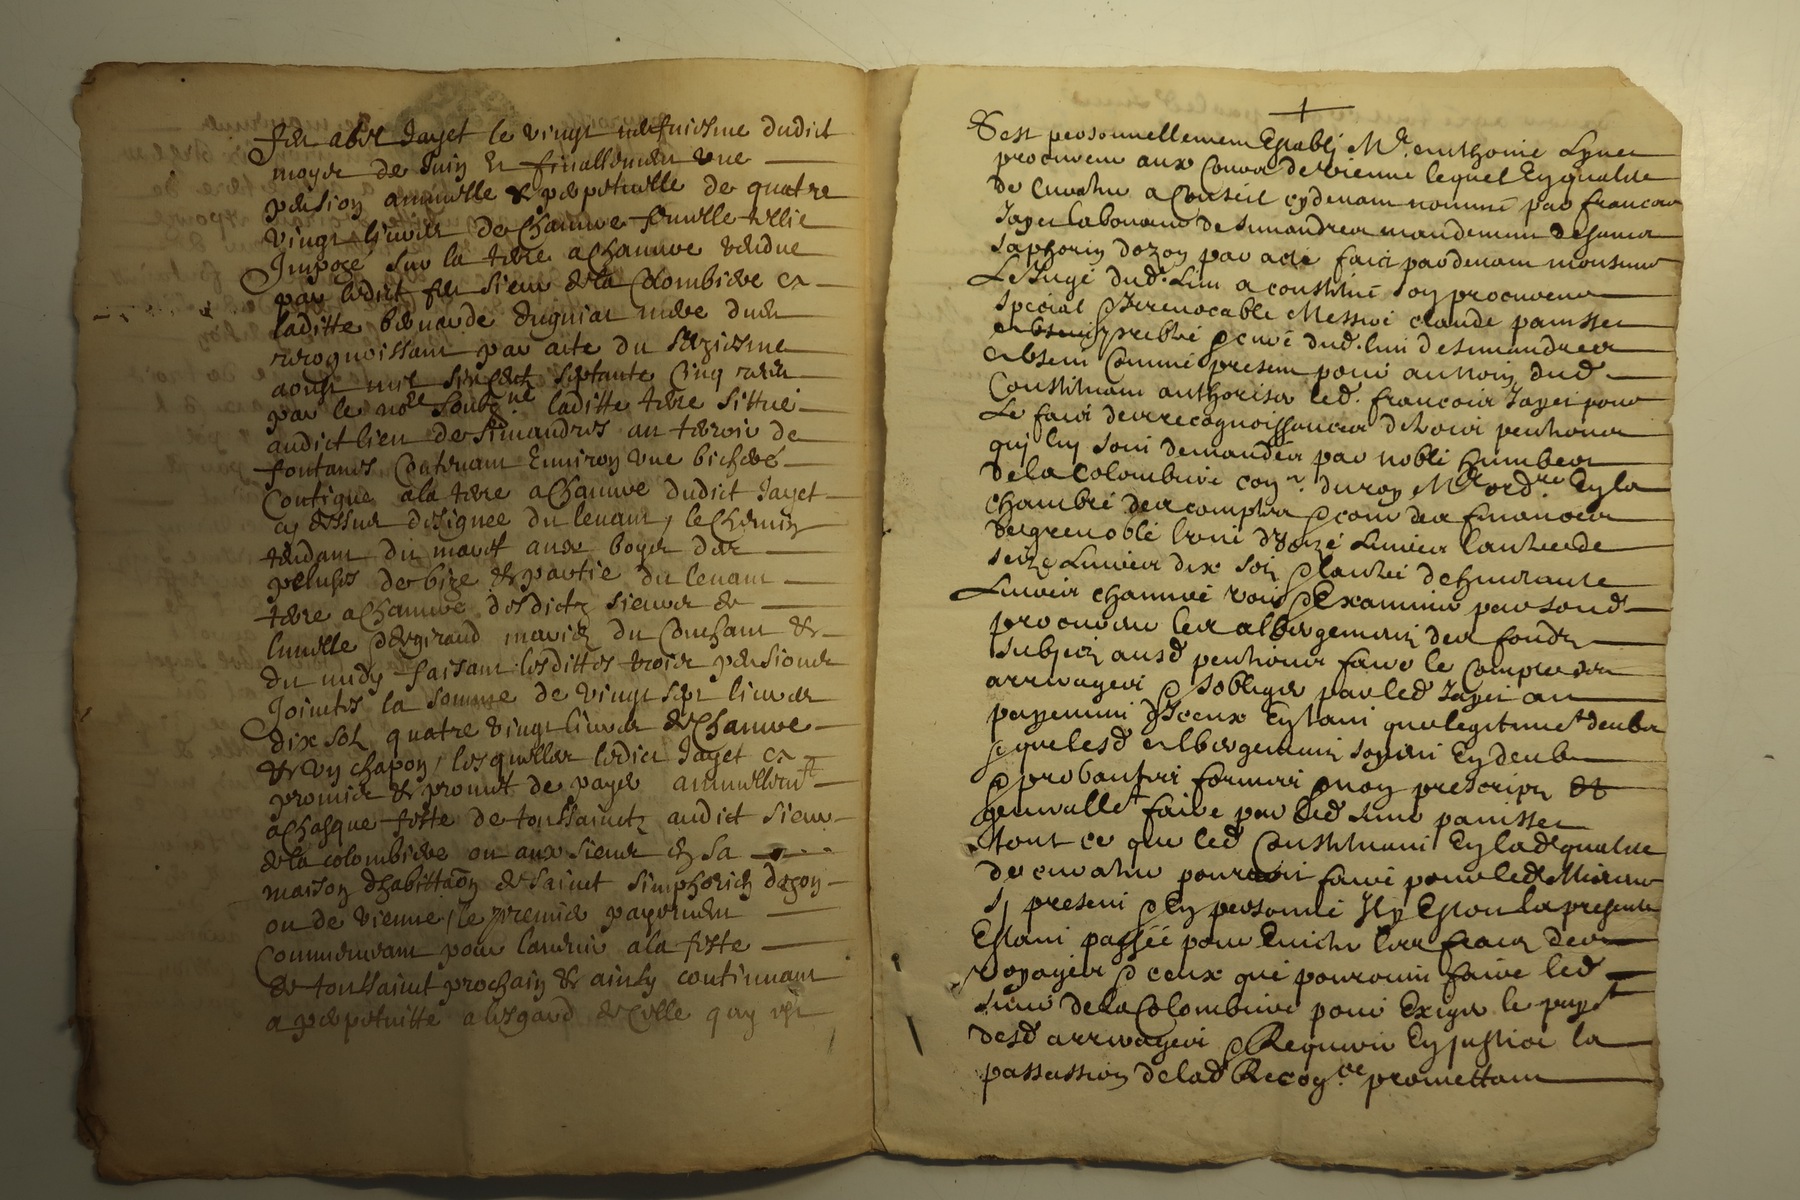 feu abel Jayet le vingt neufuiesme dudict
moys de Juin Et finallement vne
pension annuelle & perpetuelle de quatre
vingt liures de Chanure femelle tellie
Imposé sur la terre a Chanure vendue
par ledict feu sieur de la Colombiere et
laditte bernarde mere dudt
recognoissant par acte du seziesme
aoust mil six Centz septante Cinq receu
par le nore soubzne laditte terre sittué
audict lieu de Simandres au terroir de
fontanes Contenant Enuiron vne bicheré
Contigue a la terre a Chanure dudict Jayet
cy dessus designee du leuant, le Chemin
tendant du aux boyes des
de bize & partie du leuant
terre a Chanure desdictz sieurs de
luuelle & du Couchant &
du midy faisant lesdittes trois pensions
Jointes la somme de vingt sept liures
dix solz quatre vingt liures de Chanure
& vn chapon, lesquelles ledict Jayet et
promis & promet de payer annuellemt
a Chasque feste de toussainctz audict sieur
de la colombiere ou aux siens en sa
maison dhabittaon de saint simphorien dozon
ou de vienne, le premier payement
Commencant pour lannée a la feste
de toussaint prochain & ainsy continuant
a perpetuitté a lesgard de Celle quy est
Sest personnellement Estably Mr. anthoine
procureur aux Cours de vienne lequel En qualité
de Curateur a Conseil cydeuant nommé par francois
Jayet laboureur de simandres mandement de sainct
saphorin dozon par acte faict pardeuant monsieur
Le Juge dud. lieu a constitué son procureur
special & Irreuocable Messire claude panisset
prebtre & curé dud. lieu de simandres
absent Comme present pour au nom dud
Constituant authoriser led. francois Jayet pour
Le faire des recognoissances de trois penthions
quj luy sont demandées par noble humbert
de la Colombiere cogner. du roy Mre ordre En la
chambre des comptes & cour des finances
de grenoble lune donze Liures lautre de
seize Liures dix solz & lautre de huictante
Liures chanure voir & Examiner par sond
procureur les albergements des fondz
subjectz ausd penthions faire le Compte des
arrerages & sobliger par led Jayet au
payement dJceux Estant que legitimet deubz
& que lesd albergements soyent En deube
& probante forme & non prescriptz Et
generallet faire par led sieur panisset
tout ce que led Constituant En lad qualité
de curateur pourroit faire pour led Mineur
sy present & En personne Jl y Estoit la presente
Estant passée pour Euiter les frais des
voyages & ceux que pourroient faire led
sieur de la Colombiere pour Exiger le payt
desd arrerages & Requerir En justice la
passassion de lad Recogce promettant